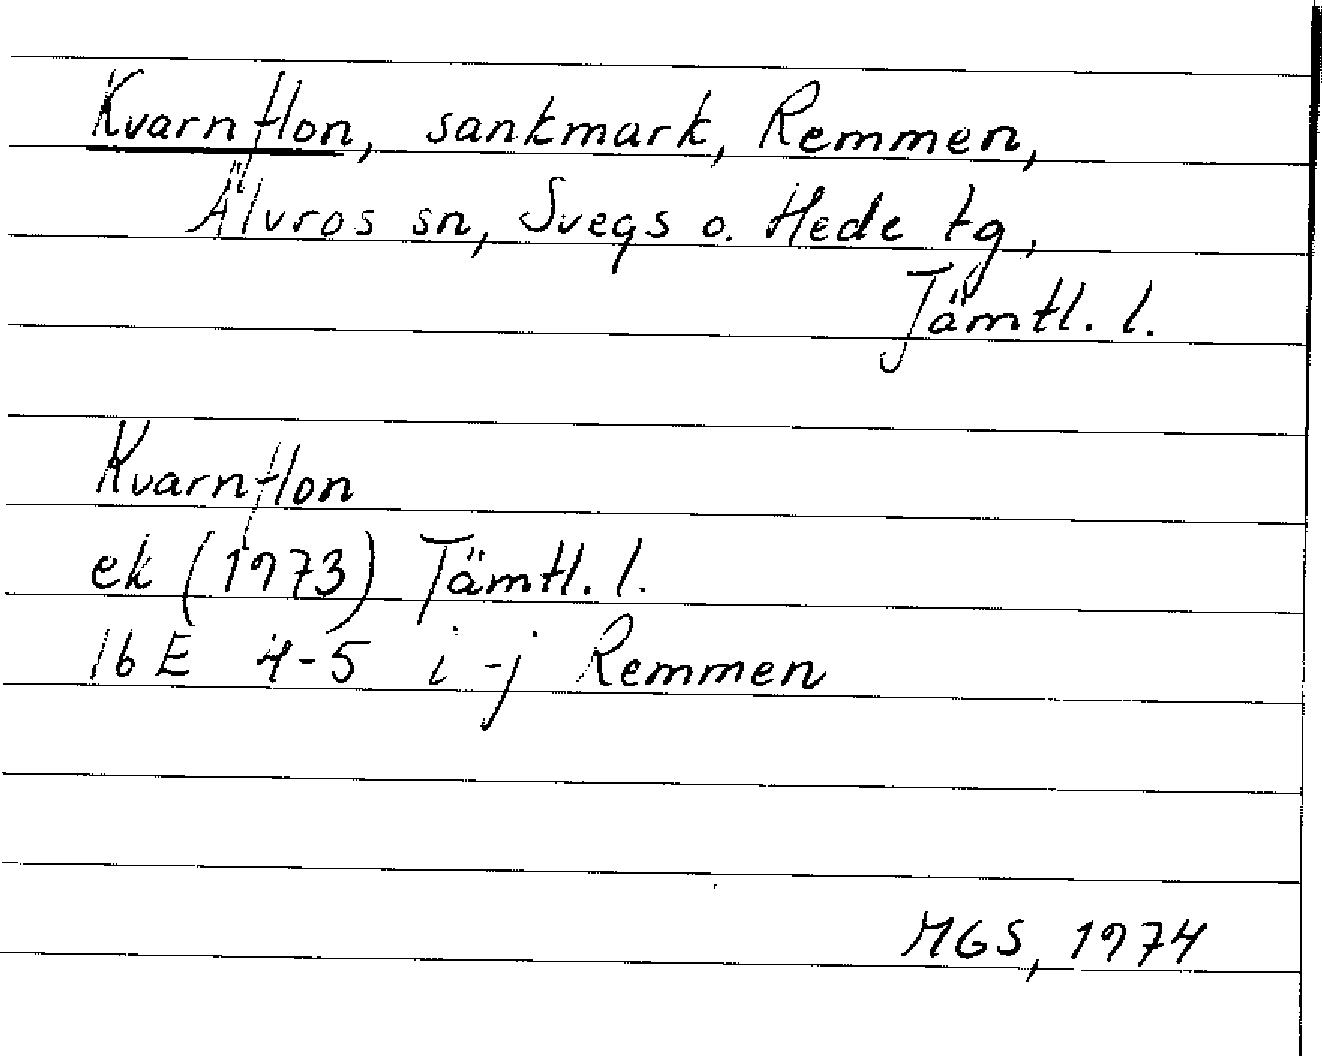 Kvarnflon, sankmark, Remmen,
Älvros sn, Svegs o. Hede tg,
Jämtl. l.
Kvarnflon
ek (1973) Jämtl. l.
16E 4-5 i-j Remmen
MGS, 1974